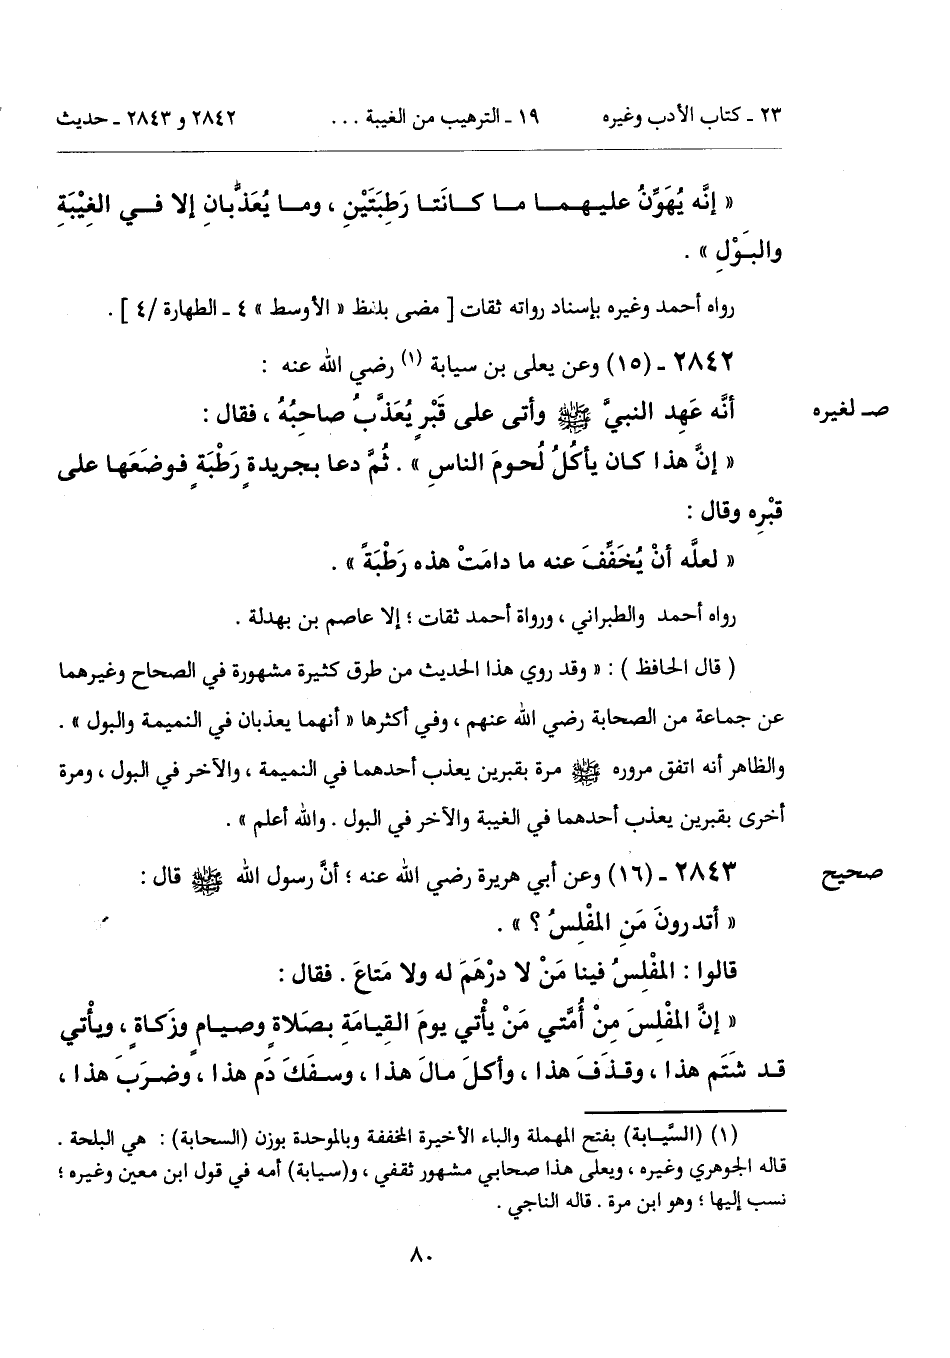 ٢٣ ـ كتاب الأدب وغيره ١٩ ـ الترهيب من الغيبة ... ٢٨٤٢ و ٢٨٤٣ ـ حديث
« إنَّه يُهَوِّنُ عليـهـمـا مـا كـانَتـا رَطِبَتَيْنِ ، ومـا يُعَذَّبانِ إلا فـي الغِيْبَةِ
والبَوْلِ » .
رواه أحمد وغيره بإسناد رواته ثقات [ مضى بلفظ « الأوسط » ٤ ـ الطهارة /٤ ] .
٢٨٤٢ ـ (١٥) وعن يعلى بن سيابة (١) رضي الله عنه :
صـ لغيره أنَّه عَهِد النبيَّ ﷺ وأتى على قَبْرٍ يُعَذَّبُ صاحِبُهُ ، فقال :
« إنَّ هذا كان يأكُلُ لُحومَ الناسِ » . ثُمَّ دعا بجريدةٍ رَطْبَةٍ فوضَعَها على
قبْرِه وقال :
« لعلَّه أنْ يُخَفِّفَ عنه ما دامَتْ هذه رَطْبَةً » .
رواه أحمد والطبراني ، ورواة أحمد ثقات ؛ إلا عاصم بن بهدلة .
( قال الحافظ ) : « وقد روي هذا الحديث من طرق كثيرة مشهورة في الصحاح وغيرهما
عن جماعة من الصحابة رضي الله عنهم ، وفي أكثرها « أنهما يعذبان في النميمة والبول » .
والظاهر أنه اتفق مروره ﷺ مرة بقبرين يعذب أحدهما في النميمة ، والآخر في البول ، ومرة
أخرى بقبرين يعذب أحدهما في الغيبة والآخر في البول . والله أعلم » .
صحيح ٢٨٤٣ ـ (١٦) وعن أبي هريرة رضي الله عنه ؛ أنَّ رسول الله ﷺ قال :
« أتدرونَ مَنِ المفْلِسُ ؟ » .
قالوا : المفْلِسُ فينا مَنْ لا درْهَمَ له ولا مَتاعَ . فقال :
« إنَّ المفْلِسَ مِنْ أُمَّتي مَنْ يأْتي يومَ القِيامَةِ بصَلاةٍ وصِيامٍ وزَكاةٍ ، ويأْتي
قد شَتَم هذا ، وقذَفَ هذا ، وأكلَ مالَ هذا ، وسفَكَ دَم هذا ، وضرَبَ هذا ،
(١) (السَّيَـابة) بفتح المهملة والياء الأخيرة المخففة وبالموحدة بوزن (السحابة) : هي البلحة .
قاله الجوهري وغيره ، ويعلى هذا صحابي مشهور ثقفي ، و(سيابة) أمه في قول ابن معين وغيره ؛
نسب إليها ؛ وهو ابن مرة . قاله الناجي .
٨٠